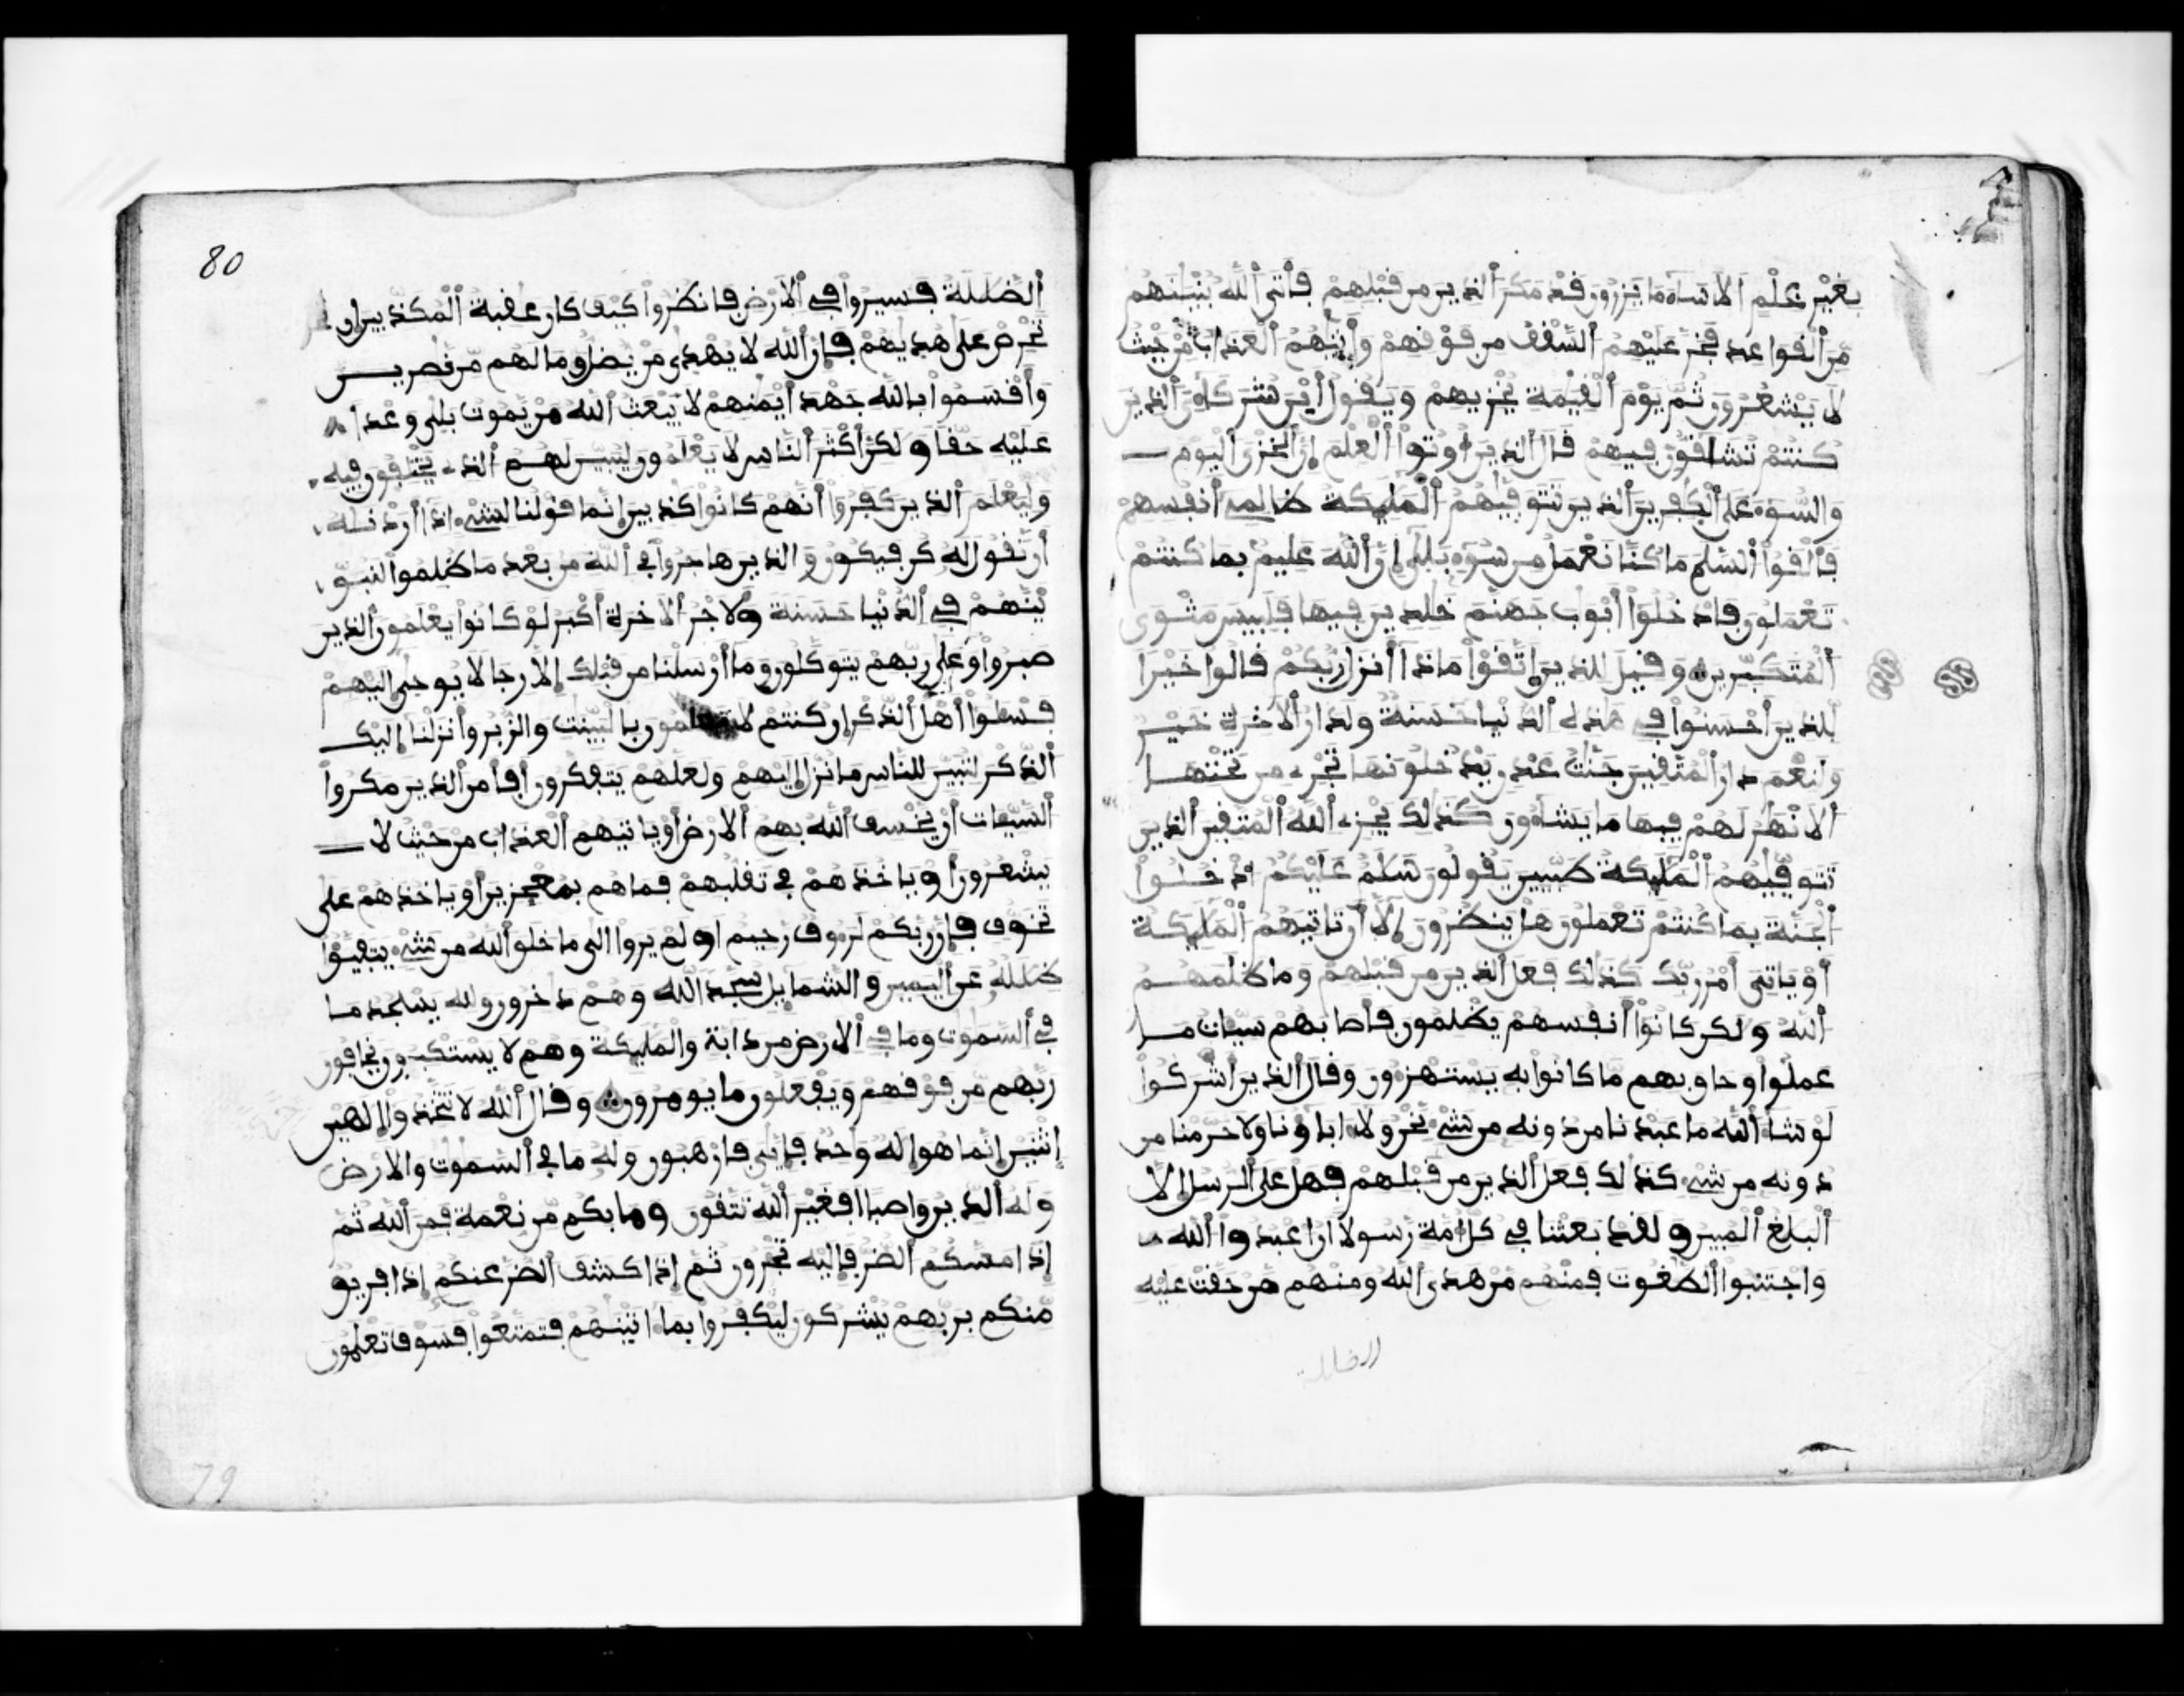 بغير علم الا ساء ما يزرون قد مكر الذين من قبلهم فأتى الله بنينهم
من القواعد فخر عليهم السقف من فوقهم وأتيهم العذاب من حيث
لا يشعرون ثم يوم القيمة يخزيهم ويقول أين شركاءي الذين
كنتم تشاقون فيهم قال الذين أوتوا العلم إن الخزي اليوم
والسوء على الكفرين الذين تتوفيهم المليكة ظالمي أنفسهم
فألقوا السلم ما كنا نعمل من سوء بلى إن الله عليم بما كنتم
تعملون فادخلوا أبوب جهنم خلدين فيها فلبيس مثوى
المتكبرين وقيل للذين اتقوا ماذا أنزل ربكم قالوا خيرا
للذين أحسنوا في هذه الدنيا حسنة ولدار الاخرة خير
ولنعم دار المتقين جنت عدن يدخلونها تجري من تحتها
الانهر لهم فيها ما يشاءون كذلك يجزي الله المتقين الذين
تتوفيهم المليكة طيبين يقولون سلم عليكم ادخلوا
الجنة بما كنتم تعملون هل ينظرون إلا أن تاتيهم المليكة
أو ياتي أمر ربك كذلك فعل الذين من قبلهم وما ظلمهم
الله ولكن كانوا أنفسهم يظلمون فأصابهم سيات ما
عملوا وحاق بهم ما كانوا به يستهزون وقال الذين أشركوا
لو شا الله ما عبدنا من دونه من شي نحن ولا اباونا ولا حرمنا من
دونه من شي كذلك فعل الذين من قبلهم فهل على الرسل إلا
البلغ المبين ولقد بعثنا في كل أمة رسولا ان اعبدوا الله
واجتنبوا الطغوت فمنهم من هدى الله ومنهم من حقت عليه
الضللة
80
الضللة فسيروا في الارض فانظروا كيف كان عقبة المكذبين إن
تحرص على هديهم فإن الله لا يهدي من يضل وما لهم من نصرين
وأقسموا بالله جهد أيمنهم لا يبعث الله من يموت بلى وعدا
عليه حقا ولكن أكثر الناس لا يعلمون ليبين لهم الذي يختلفون فيه
وليعلم الذين كفروا أنهم كانوا كذبين إنما قولنا لشيء اذا أردنه
أن نقول له كن فيكون والذين هاجروا في الله من بعد ما ظلموا لنبو
ينهم في الدنيا حسنة ولاجر الاخرة أكبر لو كانوا يعلمون الذين
صبروا وعلى ربهم يتوكلون وما أرسلنا من قبلك إلا رجالا يوحى إليهم
فسلوا أهل الذكر إن كنتم لا تعلمون بالبينت والزبر وأنزلنا إليك
الذكر لتبين للناس ما نزل إليهم ولعلهم يتفكرون أفأمن الذين مكروا
السيات أن يخسف الله بهم الارض أو ياتيهم العذاب من حيث لا
يشعرون أو ياخذهم في تقلبهم فما هم بمعجزين أو ياخذهم على
تخوف فإن ربكم لروف رحيم أو لم يروا الى ما خلق الله من شيء يتفيؤا
ظلله عن اليمين والشمايل سجدا لله وهم دخرون ولله يسجد ما
في السموت وما في الارض من دابة والمليكة وهم لا يستكبرون يخافون
ربهم من فوقهم ويفعلون ما يومرون وقال الله لا تتخذوا إلهين
إثنين إنما هو إله وحد فإيي فارهبون وله ما في السموت والارض
وله الدين واصبا افغير الله تتقون وما بكم من نعمة فمن الله ثم
إذا مسكم الضر فإليه تجرون ثم إذا كشف الضر عنكم إذا فريق
منكم بربهم يشركون ليكفروا بما اتينهم فتمتعوا فسوف تعلمون
79